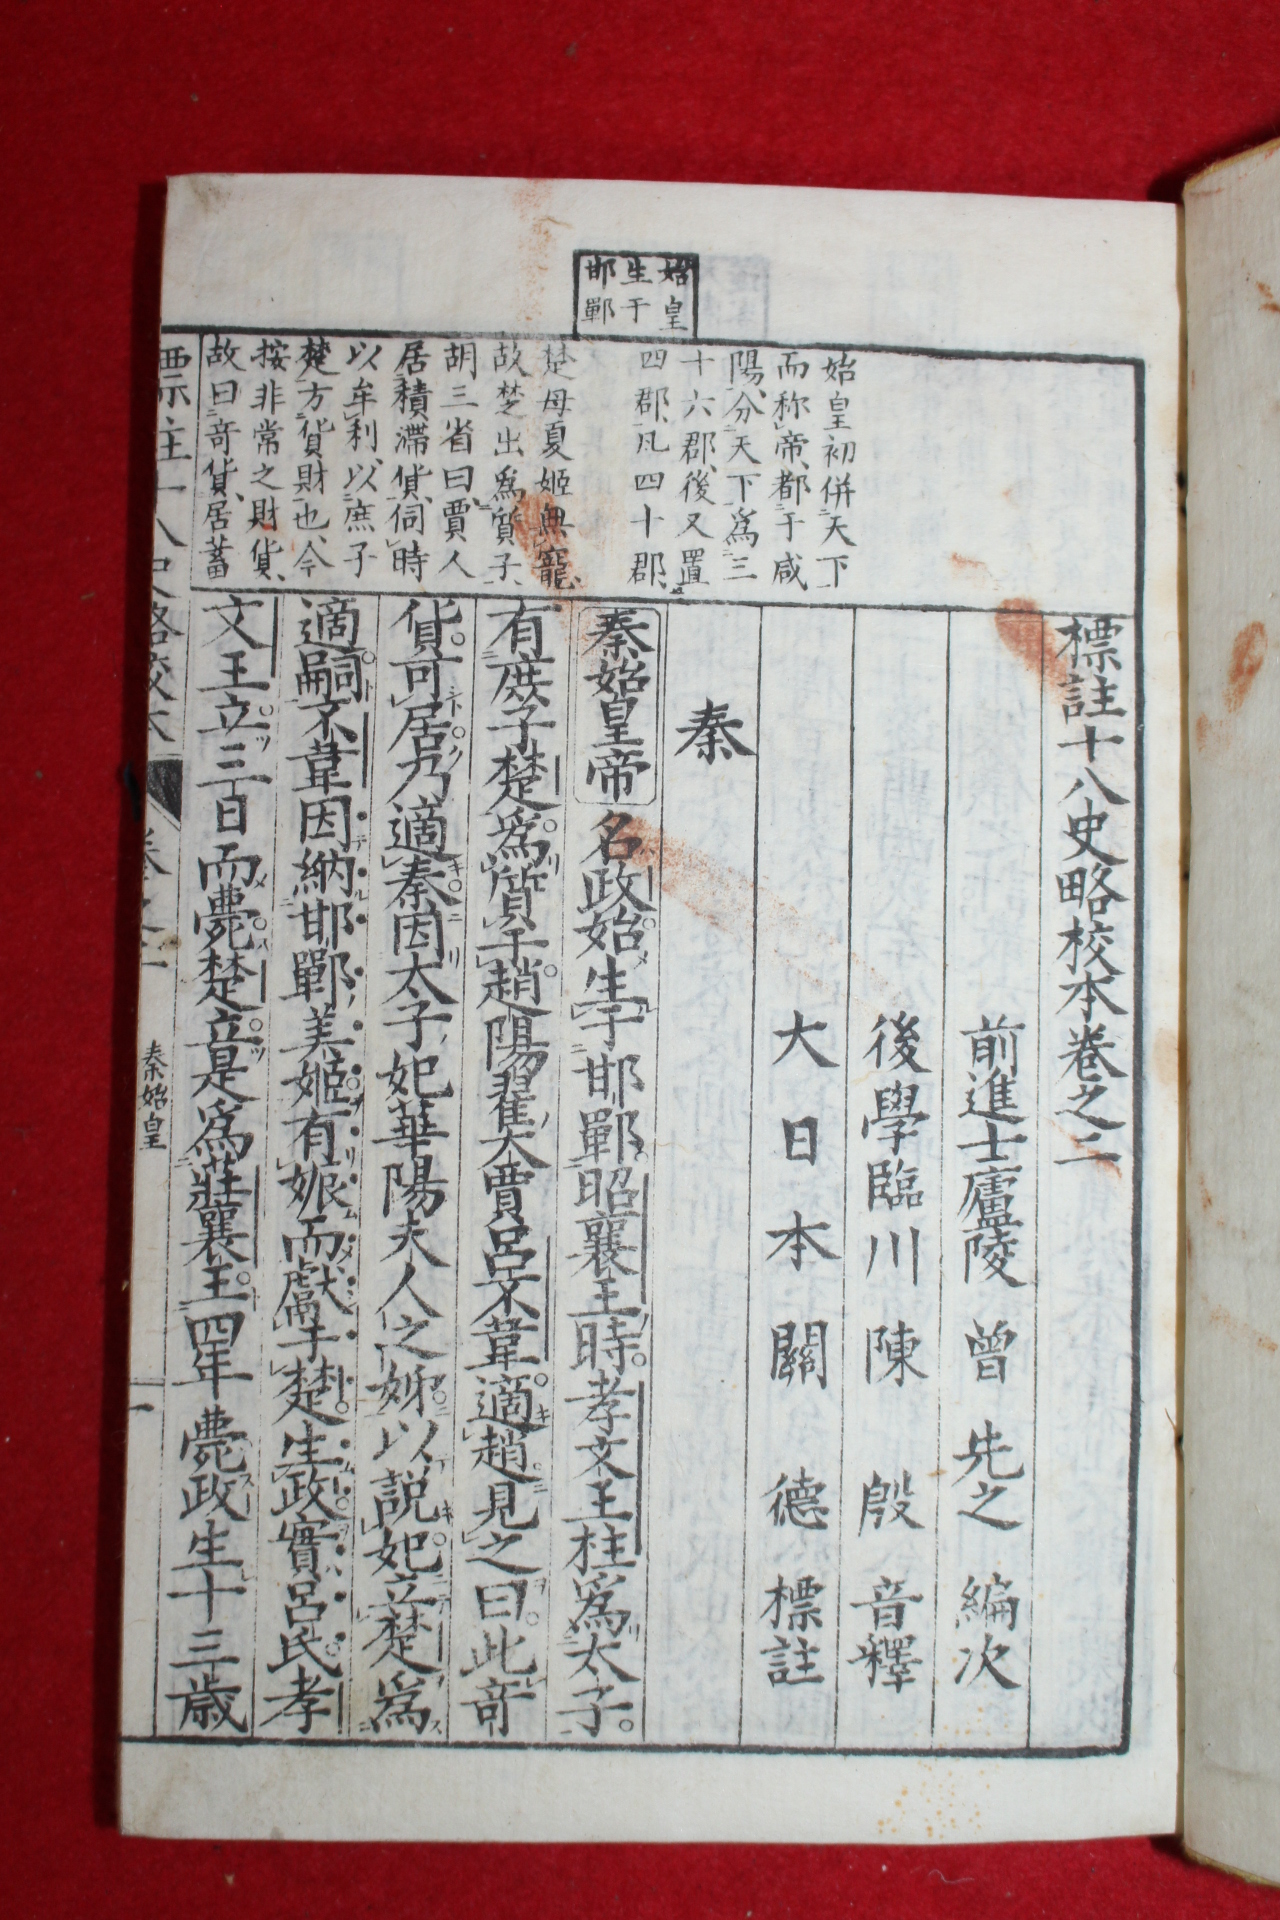 始皇
生于
邯鄲
始皇初併天下
而称帝、都于咸
陽、分天下爲三
十六郡、後又置
四郡、凡四十郡、
楚母夏姬無寵、
故楚出爲質子、
胡三省曰、賈人
居積滯貨、伺時
以牟利、以庶子
楚方貨財也、今
按非常之財貨、
故曰奇貨、居蓄
標註十八史略校本卷之二
前進士廬陵 曾 先之 編次
後學臨川 陳 殷 音釋
大日本 關 德 標註
秦
秦始皇帝名政始生于邯鄲昭襄王時。孝文王柱爲太子。
有庶子楚爲質于趙陽翟大賈呂不韋適趙見之曰此奇
貨可居乃適秦因太子妃華陽夫人之姊以説妃立楚爲
適嗣不韋因納邯鄲美姬有娠而獻于楚生政實呂氏孝
文王立三日而薨楚立是爲莊襄王四年薨政生十三歲
標註十八史略校本 卷之二 秦始皇 一